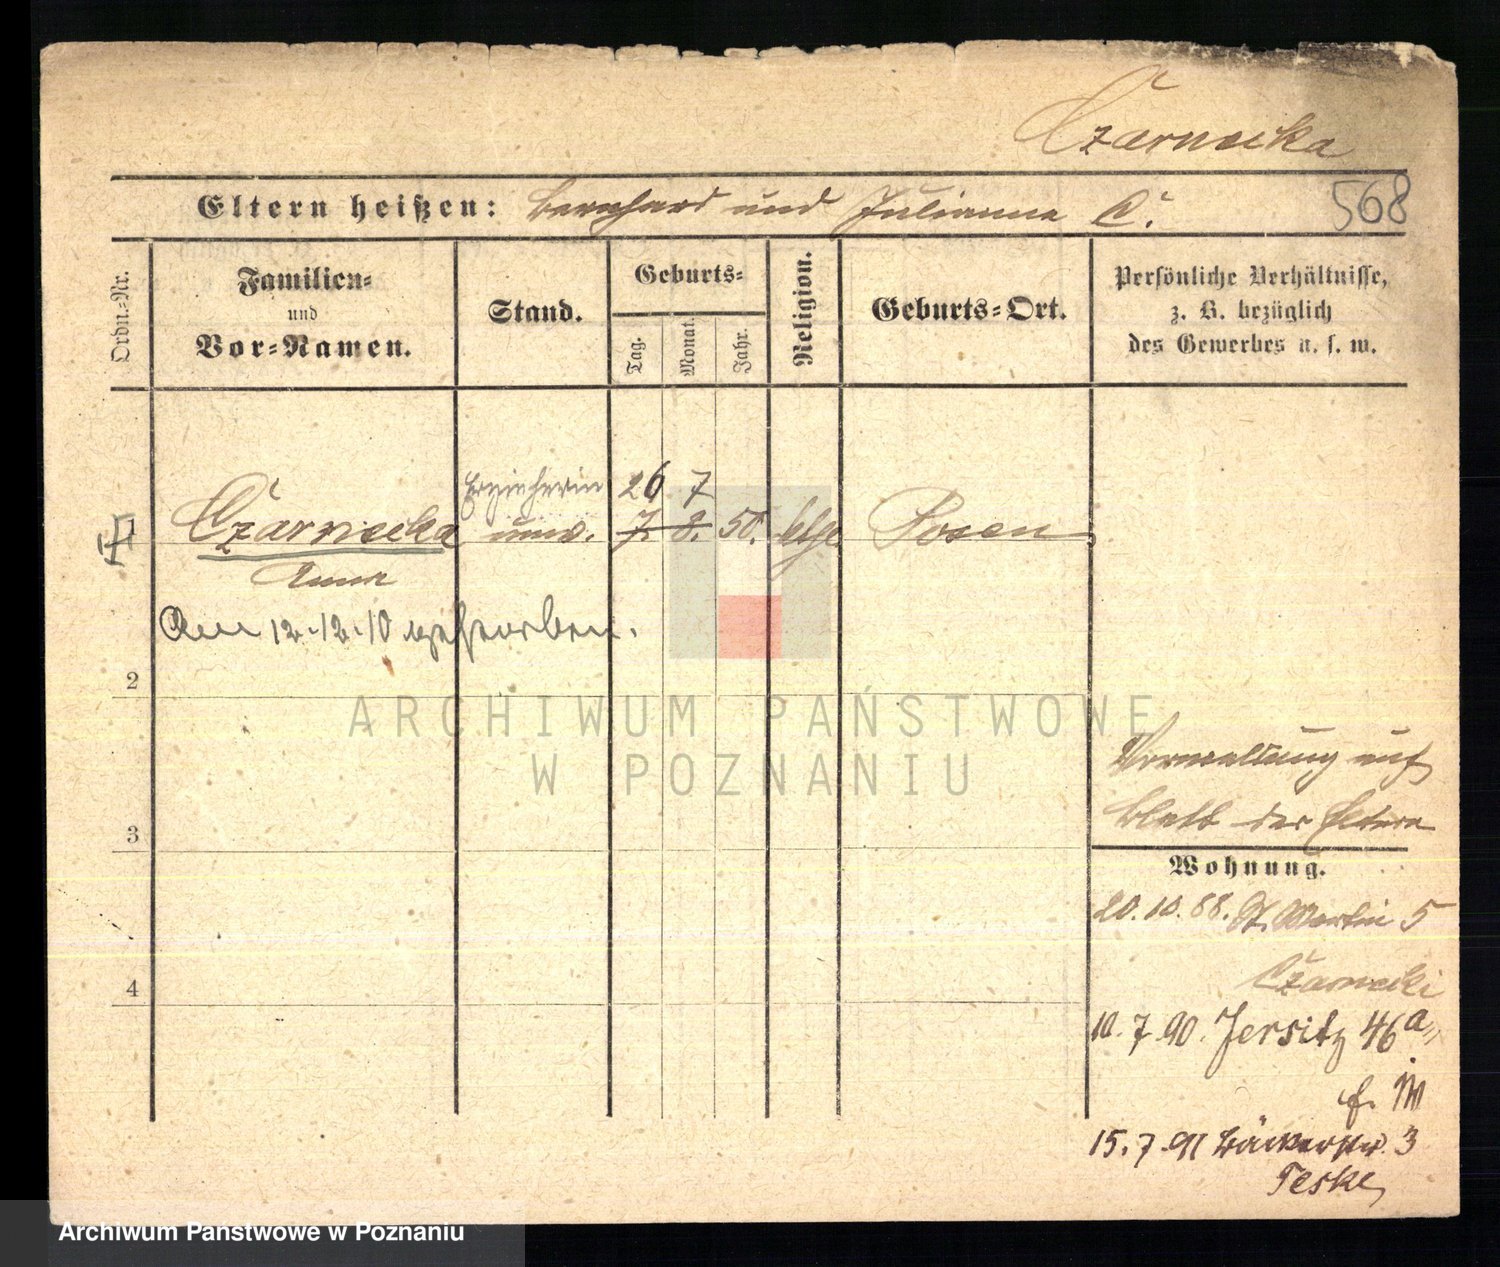 Czarnecka
Eltern heißen: Bernhard und Julianna C.
568
Ordn.-Nr.
Familien-
und
Vor-Namen.
Stand.
Geburts-
Tag.
Monat.
Jahr.
Religion.
Geburts-Ort.
Persönliche Verhältnisse,
z. B. bezüglich
des Gewerbes u. s. w.
Erzieherin 26 7
1 Czarnecka unv. 7. 8. 50. kthl Posen
Anna
Am 12.12.10 gestorben.
2
ARCHIWUM PAŃSTWOWE
W POZNANIU
Verwaltung auf
Blatt der Eltern
3
Wohnung.
20.10.88. St. Martin 5
Czarnecki
4
10.7.90. Jersitz 46a
f. M
15.7.91 Bäckerstr. 3
Teske
Archiwum Państwowe w Poznaniu